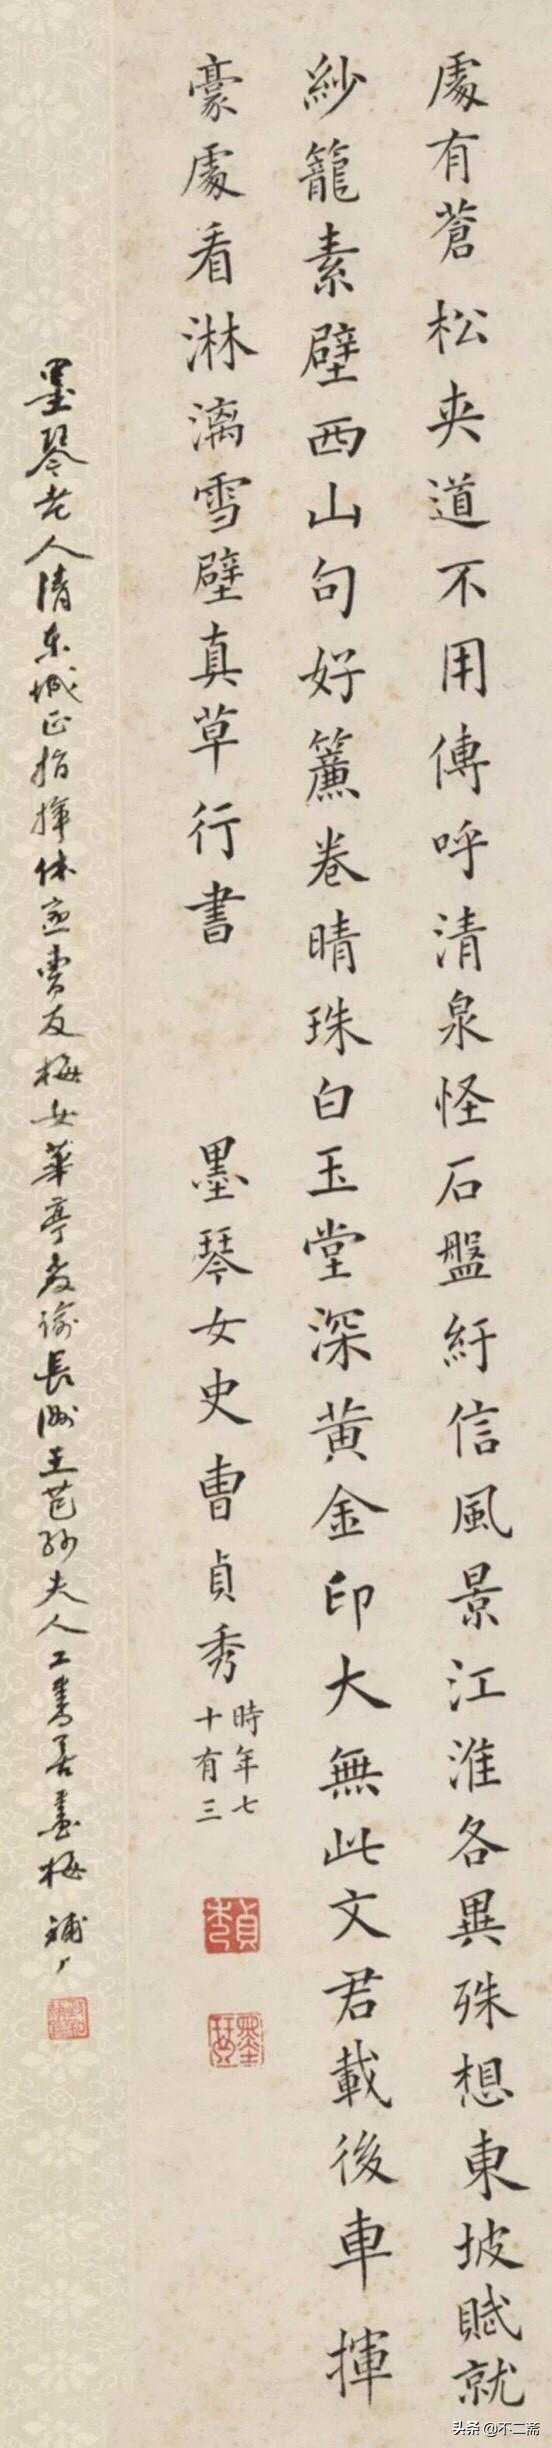 處有蒼松夾道不用傳呼清泉怪石盤紆信風景江淮各異殊想東坡賦就
紗籠素壁西山句好簾卷晴珠白玉堂深黃金印大無此文君載後車揮
豪處看淋漓雪壁真草行書
墨琴女史曹貞秀
時年七
十有三
貞秀
墨琴
墨琴老人清東城正指揮休寧曹友梅女華亭教諭長洲王芑孫夫人工書善畫梅
头条 @不二斋